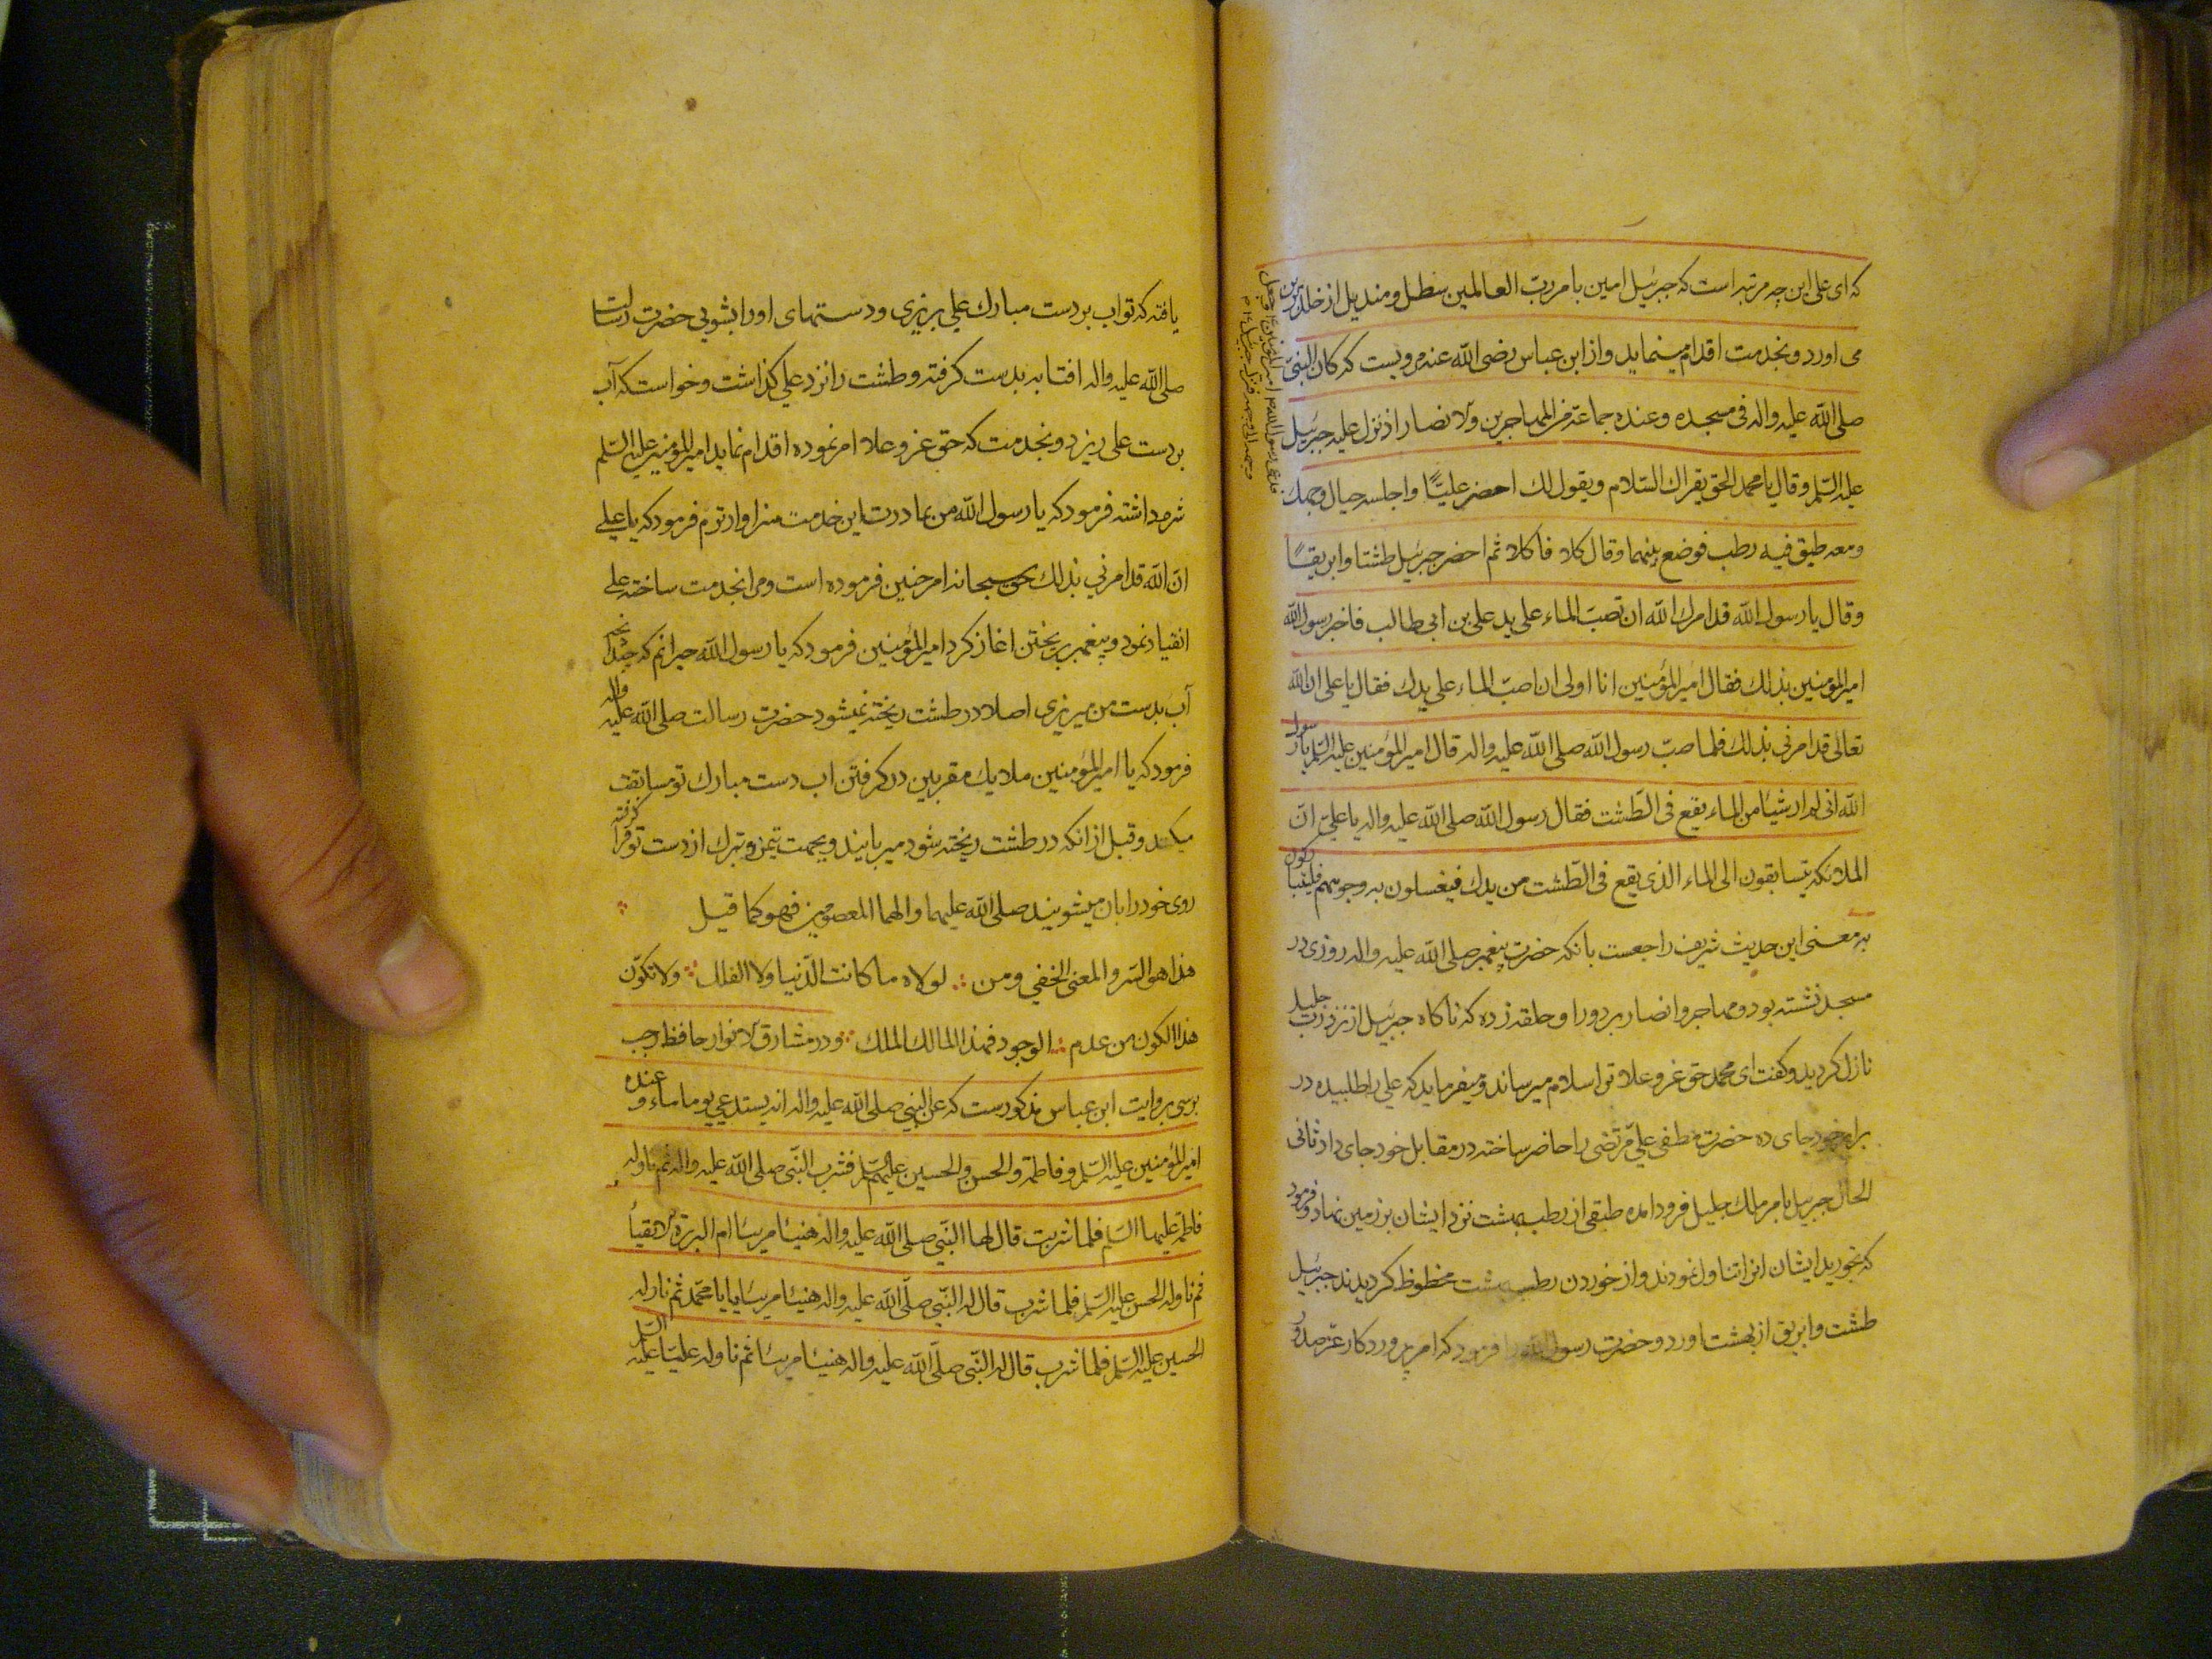 که ای علی این چه مرتبه است که جبرئیل امین بامر رب العالمین سطل و مندیل از خلد برین
می اورد و بخدمت اقدام مینماید و از ابن عباس رضی الله عنه مرویست که کان النبی
صلی الله علیه واله فی مسجده وعنده جماعة من المهاجرین والانصار اذ نزل علیه جبرئیل
علیه السلم وقال یا محمد الحق یقرأک السلام ویقول لک احضر علیّاً واجلسه حیال وجهک
ومعه طبق فیه رطب فوضع بینهما وقال کلا فاکلا ثم احضر جبرئیل طشتا وابریقاً
وقال یا رسول الله قد امرک الله ان تصب الماء علی ید علی بن ابی طالب فاخبر رسول الله
امیر المؤمنین بذلک فقال امیر المؤمنین انا اولی ان اصب الماء علی یدک فقال یا علی ان الله
تعالی قد امرنی بذلک فلما صب رسول الله صلی الله علیه واله قال امیر المؤمنین علیه السلم یا رسول
الله انی لم ار شیئا من الماء یقع فی الطشت فقال رسول الله صلی الله علیه واله یا علی ان
الملائکه یتسابقون الی الماء الذی یقع فی الطشت من یدک فیغسلون به وجوههم فیتبارکون
به معنی این حدیث شریف راجعست بانکه حضرت پیغمبر صلی الله علیه واله روزی در
مسجد نشسته بود و مهاجر و انصار بر دور او حلقه زده که ناکاه جبرئیل از نزد رب جلیل
نازل کردید و کفت ای محمد حق عز و علا ترا سلام میرساند و میفرماید که علی را طلبیده در
برابر خود جای ده حضرت مصطفی علی مرتضی را حاضر ساخته در مقابل خود جای داد ثانی
الحال جبریل بامر ملک جلیل فرود امده طبقی از رطب بهشت نزد ایشان بر زمین نهاد و فرمود
که بخورید ایشان انرا تناول نمودند و از خوردن رطب بهشت محظوظ کردیدند جبرئیل
طشت و ابریق از بهشت اورد و حضرت رسول الله را فرمود که امر پروردکار عز صدور
یافته که تو اب بر دست مبارک علی بریزی و دستهای او را بشویی حضرت رسالت
صلی الله علیه واله افتابه بدست کرفته و طشت را نزد علی کذاشت و خواست که آب
بر دست علی ریزد و بخدمت که حق عز و علا امر نموده اقدام نماید امیر المؤمنین علیه السلم
شرم داشته فرمود که یا رسول الله من بمبادرت این خدمت سزاوارترم فرمود که یا علی
ان الله قد امرنی بذلک حق سبحانه امر چنین فرموده است و مرا بخدمت ساخته علی
انقیاد نمود و پیغمبر بریختن اغاز کرد امیر المؤمنین فرمود که یا رسول الله حیرانم که چندانچه
آب بدست من میریزی اصلا در طشت ریخته نمیشود حضرت رسالت صلی الله علیه واله
فرمود که یا امیر المؤمنین ملایک مقربین در کرفتن اب دست مبارک تو مسابقت
میکنند و قبل از انکه در طشت ریخته شود میربایند و بجهت تیمن و تبرک از دست تو فرا کرفته
روی خود را بان میشویند صلی الله علیهما والهما المعصومین فهو کما قیل
هذا هو السر والمعنی الخفی ومن ؞ لولاه ما کانت الدنیا ولا الفلک ؞ ولا تکوّن
هذا الکون من عدم ؞ الوجود فهذا المالک الملک ؞ و در مشارق الانوار حافظ رجب
برسی بروایت ابن عباس مذکورست که عن النبی صلی الله علیه واله انه یستدعی یوما ماء وعنده
امیر المؤمنین علیه السلم وفاطمة والحسن والحسین علیهم السلم فشرب النبی صلی الله علیه واله ثم ناوله
فاطمة علیها السلم فلما شربت قال لها النبی صلی الله علیه واله هنیئا مریئا ام البررة الاتقیاء
ثم ناوله الحسن علیه السلم فلما شرب قال له النبی صلّی الله علیه واله هنیئا مریئا یا ابا محمد ثم ناوله
الحسین علیه السلم فلما شرب قال له النبی صلّی الله علیه واله هنیئا مریئا ثم ناوله علیّا علیه السلم